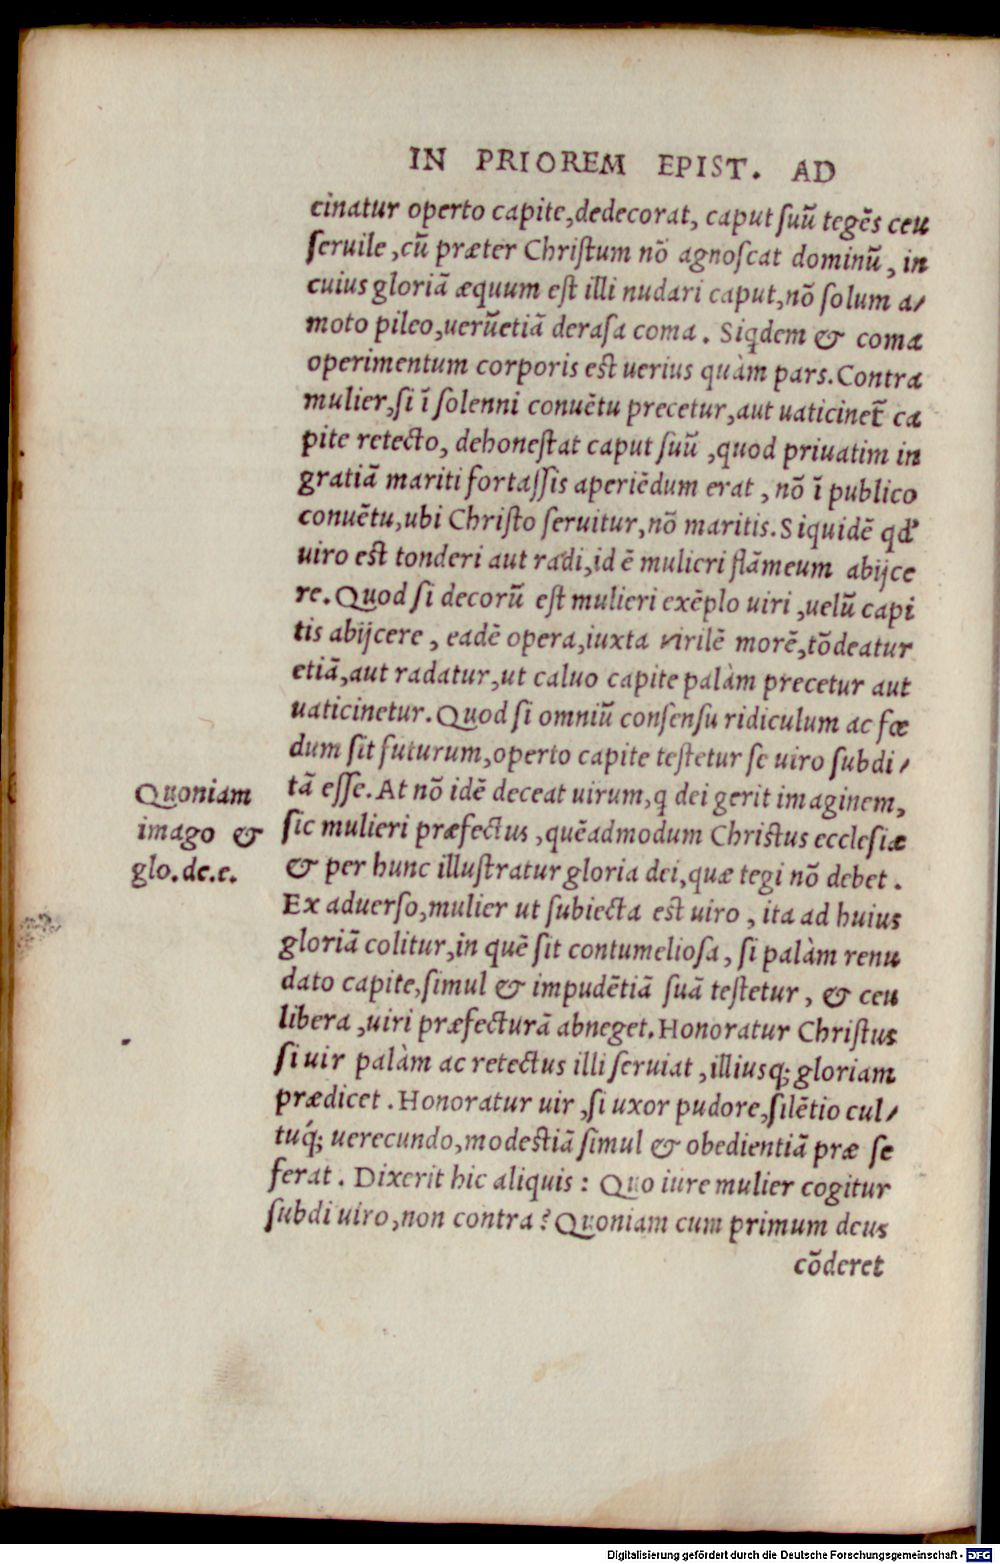 IN PRIOREM EPIST. AD
cinatur operto capite, dedecorat, caput suũ tegẽs ceu
seruile, cũ præter Christum nõ agnoscat dominũ, in
cuius gloriã æquum est illi nudari caput, nõ solum a/
moto pileo, uerũetiã derasa coma. Siqdem & coma
operimentum corporis est uerius quàm pars. Contra
mulier, si ĩ solenni conuẽtu precetur, aut uaticinet̃ ca
pite retecto, dehonestat caput suũ, quod priuatim in
gratiã mariti fortassis aperiẽdum erat, nõ ĩ publico
conuẽtu, ubi Christo seruitur, nõ maritis. Siquidẽ qd'
uiro est tonderi aut radi, id ẽ mulieri flãmeum abijce
re. Quod si decorũ est mulieri exẽplo uiri, uelũ capi
tis abijcere, eadẽ opera, iuxta virilẽ morẽ, tõdeatur
etiã, aut radatur, ut caluo capite palàm precetur aut
uaticinetur. Quod si omniũ consensu ridiculum ac fœ
dum sit futurum, operto capite testetur se uiro subdi/
tã esse. At nõ idẽ deceat uirum, q dei gerit imaginem,
sic mulieri præfectus, quẽadmodum Christus ecclesiæ
& per hunc illustratur gloria dei, quæ tegi nõ debet.
Ex aduerso, mulier ut subiecta est uiro, ita ad huius
gloriã colitur, in quẽ sit contumeliosa, si palàm renu
dato capite, simul & impudẽtiã suã testetur, & ceu
libera, uiri præfecturã abneget. Honoratur Christus
si uir palàm ac retectus illi seruiat, illiusq; gloriam
prædicet. Honoratur uir, si uxor pudore, silẽtio cul/
tuq́; uerecundo, modestiã simul & obedientiã præ se
ferat. Dixerit hic aliquis: Quo iure mulier cogitur
subdi uiro, non contra? Quoniam cum primum deus
cõderet
Quoniam
imago &
glo. de. e.
Digitalisierung gefördert durch die Deutsche Forschungsgemeinschaft - DFG